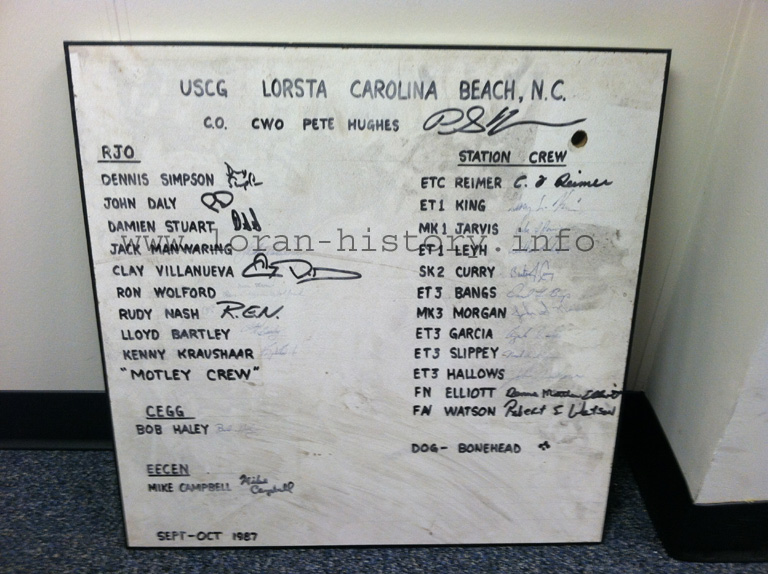 USCG LORSTA CAROLINA BEACH, N.C.
C.O. CWO PETE HUGHES
RJO
DENNIS SIMPSON
JOHN DALY
DAMIEN STUART
JACK MANWARING
CLAY VILLANUEVA
RON WOLFORD
RUDY NASH R.E.N.
LLOYD BARTLEY
KENNY KRAUSHAAR
"MOTLEY CREW"
CEGG
BOB HALEY
EECEN
MIKE CAMPBELL Mike Campbell
SEPT-OCT 1987
STATION CREW
ETC REIMER C. J Reimer
ET1 KING
MK1 JARVIS
ET1 LEYH
SK2 CURRY
ET3 BANGS
MK3 MORGAN
ET3 GARCIA
ET3 SLIPPEY
ET3 HALLOWS
FN ELLIOTT
FN WATSON Robert S Watson
DOG- BONEHEAD
www.loran-history.info